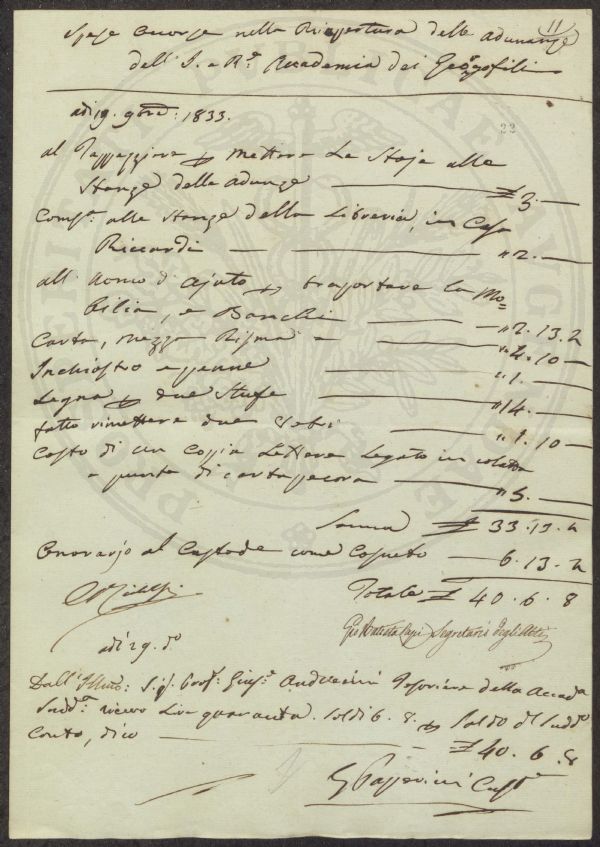 11
Spese occorse nella Riapertura delle adunanze
dell' I. e R.e Accademia dei Georgofili
adi 19. 9bre: 1833.
23
al Tappezziere p mettere Le Stoje alle
Stanze delle adunze £ 3. —
Comp.e alle stanze della Libreria, in Casa
Riccardi — " 2. —
all' Uomo d'ajuto p trasportare la Mo=
bilia, e Banchi — " 2. 13. 4
Carta, mezza Risma — " 4. 10 —
Inchiostro e penne " 1. —
Legna p due Stufe " 14. —
fatto rimettere due Vetri " 1. 10 —
Costo di un Coppia Lettere Legato in
e punte di cartapecora — " 5. —
Somma £ 33. 13. 4
Onorario al Custode come Consueto — 6. 13. 4
Totale £ 40. 6. 8
Gio Batista Segretario degli Atti
adi 29. do
Dall' Illmo: Sig. Prof. Gius.e Andreini Tesoriere della Accad.a
Sudd.a ricevo Lire quaranta. Soldi 6. 8. p Saldo del Sudd.o
Conto, dico — £ 40. 6. 8
G Passerini Cust.e